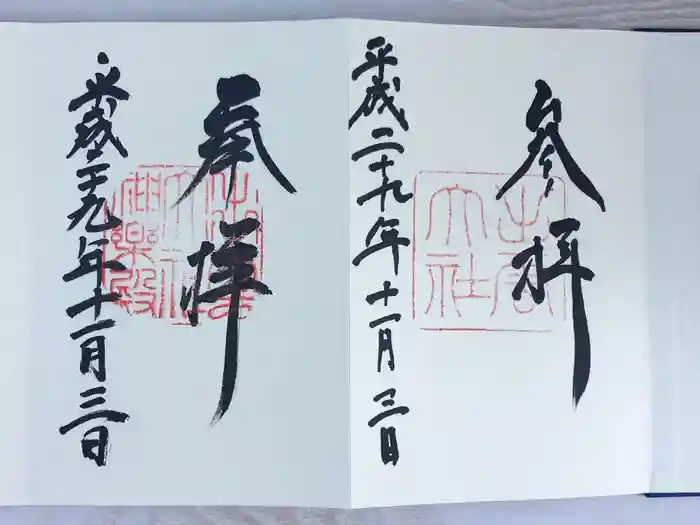 参拝
平成二十九年十一月三日
出雲大社
奉拝
平成二十九年十一月三日
出雲大社神楽殿